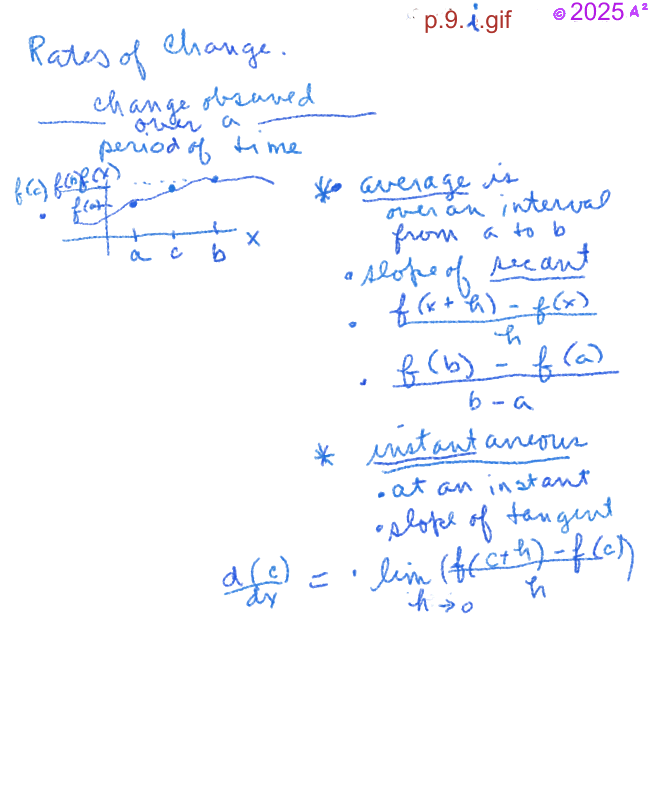 p.9.i.gif
© 2025 A²
Rates of Change.
change observed
over a
period of time
f(c) f(b) f(x)
f(a)
a c b x
* average is
over an interval
from a to b
• slope of secant
• f(x+h) - f(x)
h
• f(b) - f(a)
b - a
* instantaneous
• at an instant
• slope of tangent
d(c) = • lim (f(c+h) - f(c))
dx h→0 h